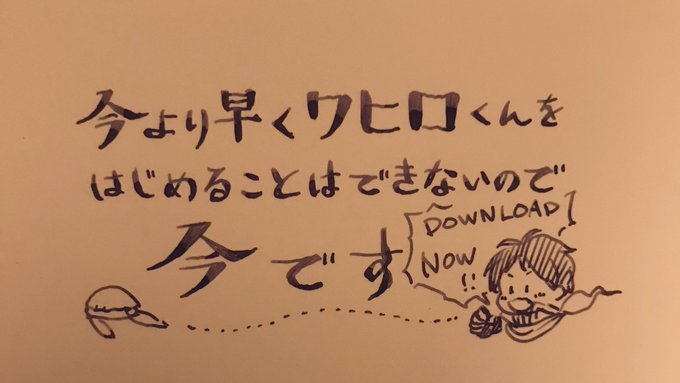 今より早くワヒロくんを
はじめることはできないので
今です
DOWNLOAD
NOW!!